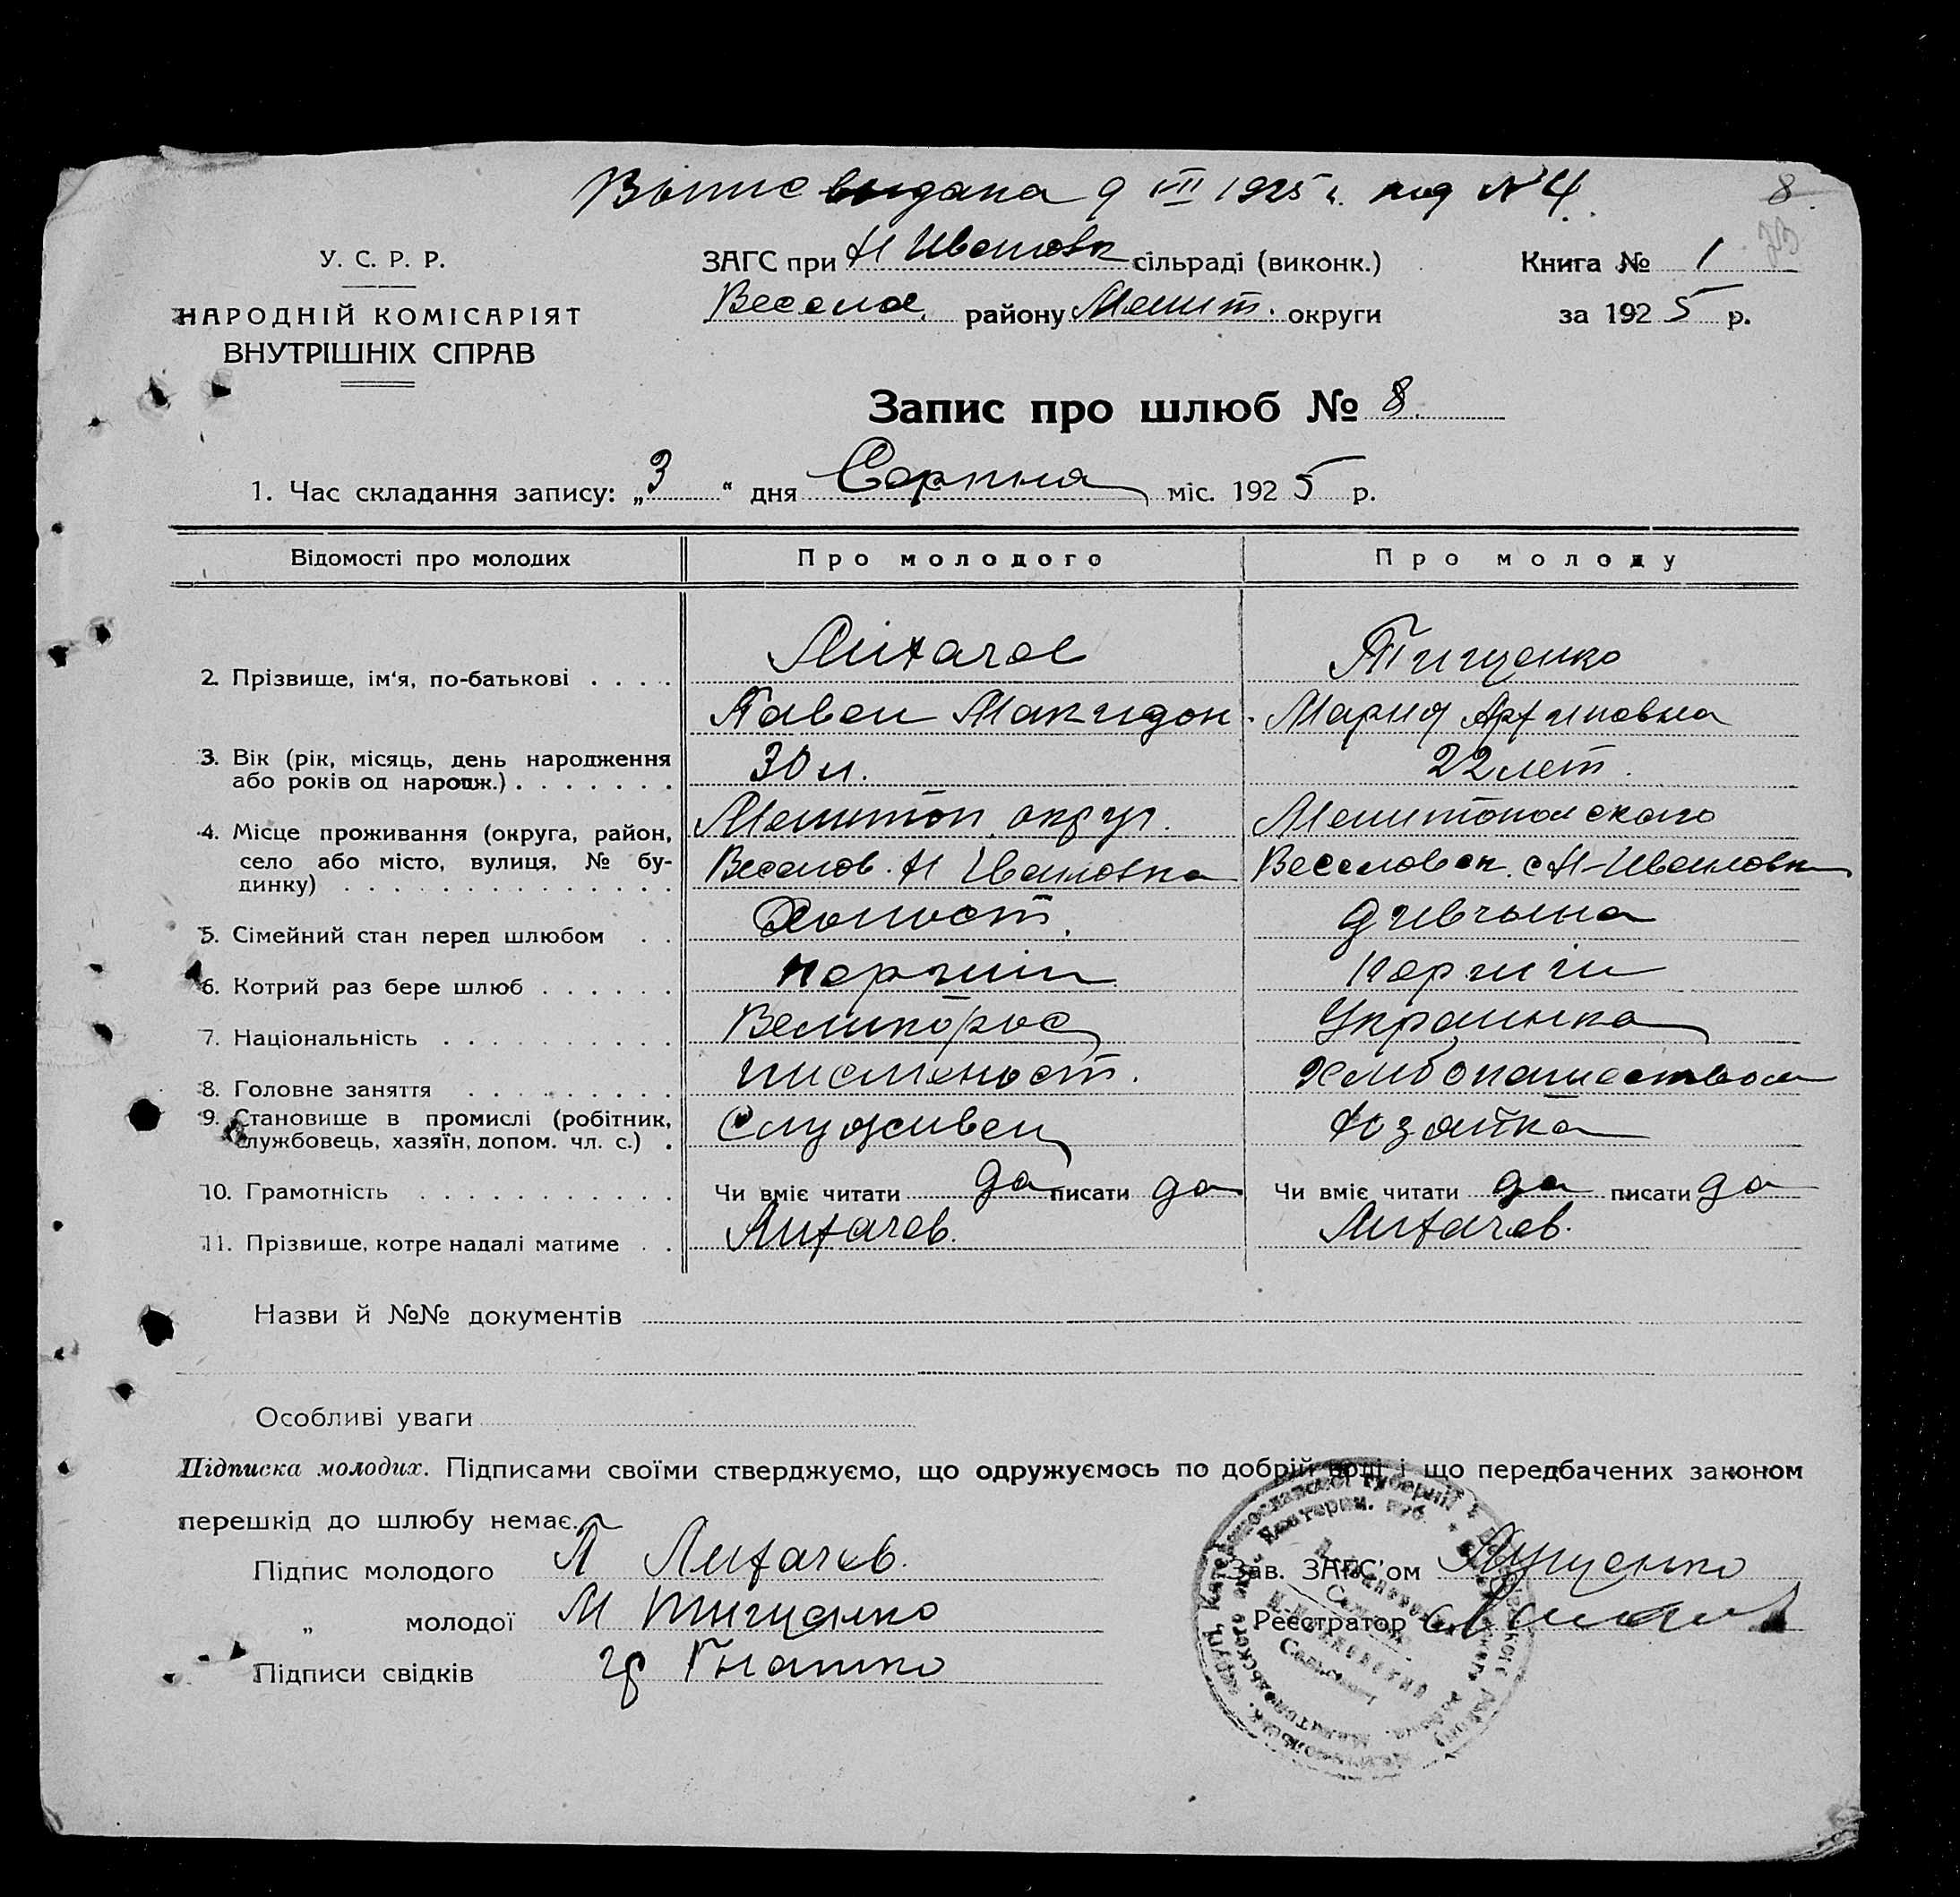 Выпис выдана 9 VII 1925 г. под № 4.
8
У. С. Р. Р.
НАРОДНІЙ КОМІСАРІЯТ
ВНУТРІШНІХ СПРАВ
ЗАГС при Н Ивановк сільраді (виконк.)
Весела району Мелит. округи
Книга № 1
за 1925 р.
Запис про шлюб № 8.
1. Час складання запису: „3“ дня Серпня міс. 1925 р.
Відомості про молодих
Про молодого
Про молоду
2. Прізвище, ім'я, по-батькові . . . .
Лихачов
Тищенко
Павел Макидон.
Мария
3. Вік (рік, місяць, день народження
або років од народж.) . . . . . . .
30 л.
22 лет.
4. Місце проживання (округа, район,
село або місто, вулиця, № бу-
динку) . . . . . . . . . . . . . .
Мелитоп. округ.
Мелитопольского
Веселов. Н Ивановка
Веселовск. с Н-Ивановк
5. Сімейний стан перед шлюбом . .
Холост.
дивчына
6. Котрий раз бере шлюб . . . . . .
перший
перший
7. Національність . . . . . . . . . .
Великорос
Украинка
8. Головне заняття . . . . . . . . .
писменост.
Хлибопашеством
9. Становище в промислі (робітник,
службовець, хазяїн, допом. чл. с.) .
Служивец
Хозяйка
10. Грамотність . . . . . . . . . . .
Чи вміє читати да писати да
Чи вміє читати да писати да
11. Прізвище, котре надалі матиме . .
Лихачев.
Лихачев.
Назви й №№ документів
Особливі уваги
Підписка молодих. Підписами своїми стверджуємо, що одружуємось по добрій волі і що передбачених законом
перешкід до шлюбу немає.
Підпис молодого П Лихачев.
„ молодої М Тищенко
Підписи свідків гр Гнатко
Зав. ЗАГС'ом
Реєстратор